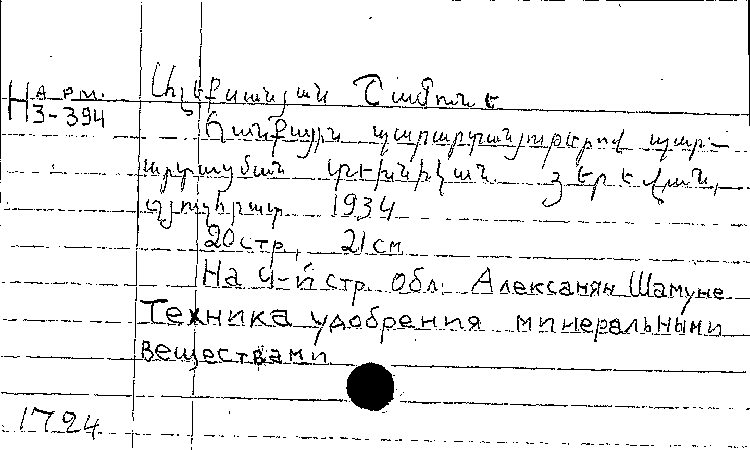 На арм.
3-394
Ալեքսանյան Շամունե
Հանքային պարարտանյութերով պար-
արտացման տեխնիկան. Յերեվան,
Գյուղհրատ 1934
20 стр., 21 см
На 4-й стр. обл. Алексанян Шамуне
Техника удобрения минеральными
веществами
1724